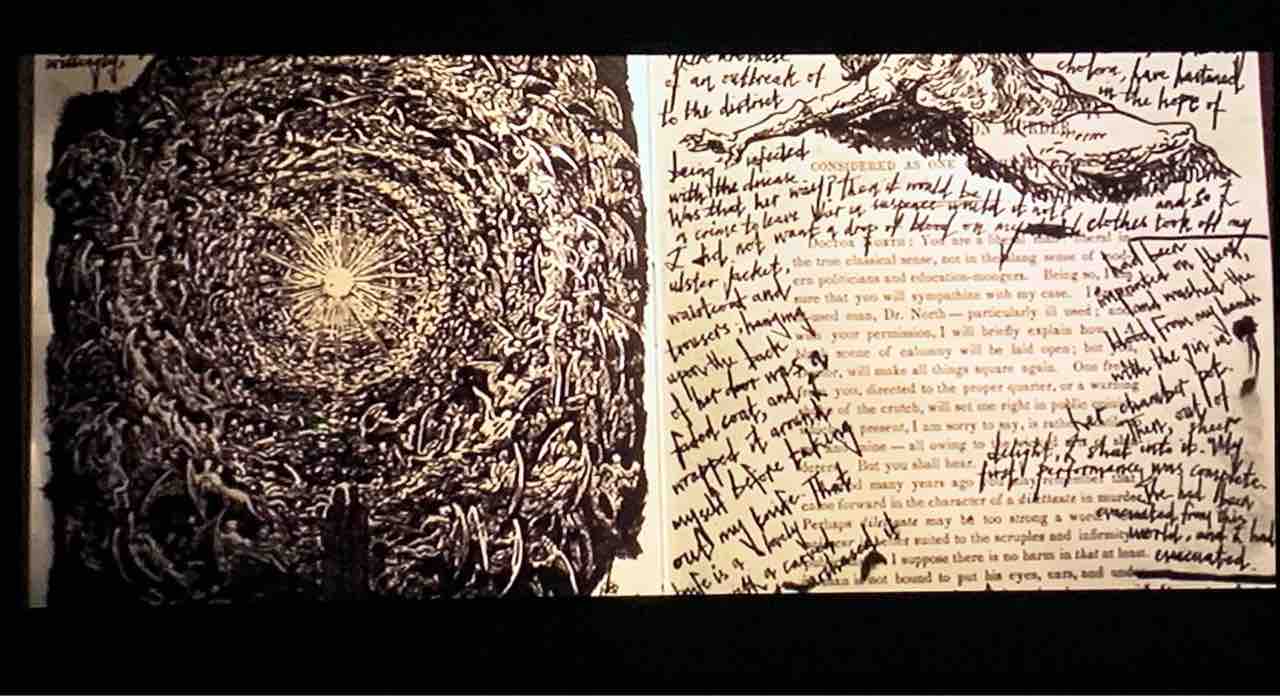 willingly,
of an outbreak of
to the district
cholera, have hastened
in the hope of
being infected
with the disease.
ON MURDER,
CONSIDERED AS ONE
Was that her wish? then it would be
a crime to leave her in suspense would it not?
and so I
I did not want a drop of blood on my clothes took off my
DOCTOR NORTH: You are a liberal man: liberal in
ulster jacket,
the true classical sense, not in the slang sense of mod-
ern politicians and education-mongers. Being so, I
waistcoat and
sure that you will sympathize with my case. I
trousers; hanging
used man, Dr. North — particularly ill used; and
your permission, I will briefly explain how. A
upon the back
scene of calumny will be laid open; but you,
of her door was a
will make all things square again. One
faded coat, and I
you, directed to the proper quarter, or a warning
wrapped it around
of the crutch, will set me right in public
present, I am sorry to say, is rather
myself before taking
mine — all owing to
But you shall hear.
out my knife. That
many years ago
came forward in the character of a dilettante in murder.
Perhaps dilettante may be too strong a word.
knife is a lovely
suited to the scruples and infirmity
with a carved
I suppose there is no harm in that at least.
purchased it
man is not bound to put his eyes, ears, and
had been
imported on them,
and washed the
blood from my hands
with the gin in
her chamber pot.
Then, out of sheer
delight, I shat into it. My
first performance was complete.
She had been
evacuated from this
world, and I had
evacuated.